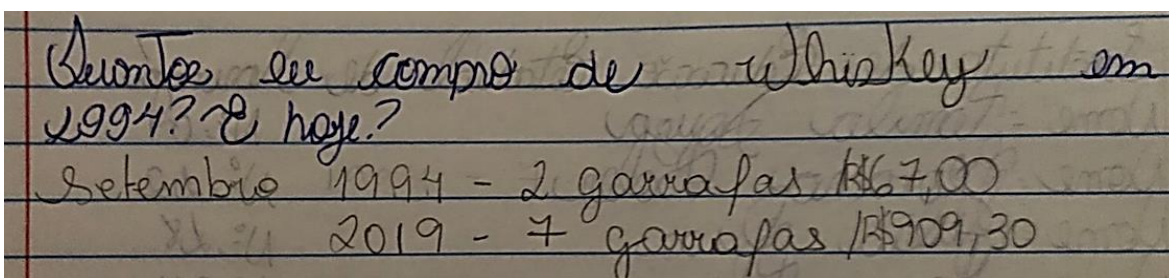 Quantos eu compro de Whiskey em
1994? E hoje?
Setembro 1994 - 2 garrafas R$67,00
2019 - 7 garrafas R$909,30